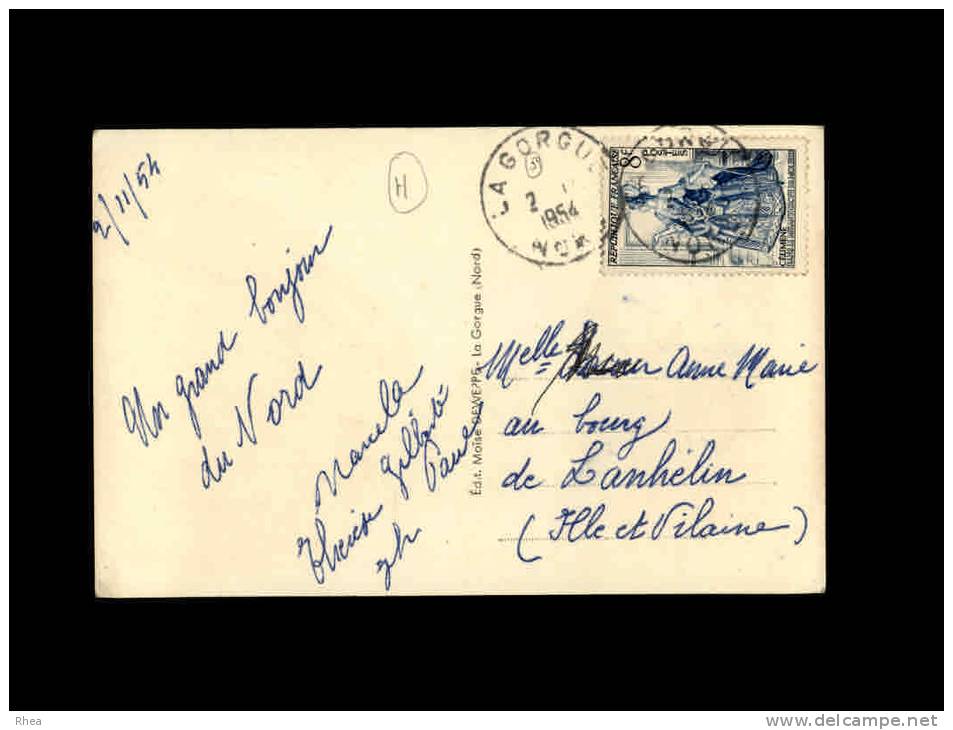 2/11/54
H
Un grand bonjour
du Nord
Marcela
Thérèse Gilberte
Paul
Édit. Moïse DEWEPPE - La Gorgue (Nord)
LA GORGUE
2
1954
NORD
8F
REPUBLIQUE FRANÇAISE
POSTES
CELIMENE
Melle Anne Marie
au bourg
de Lanhélin
(Ille et Vilaine)
Rhea
www.delcampe.net